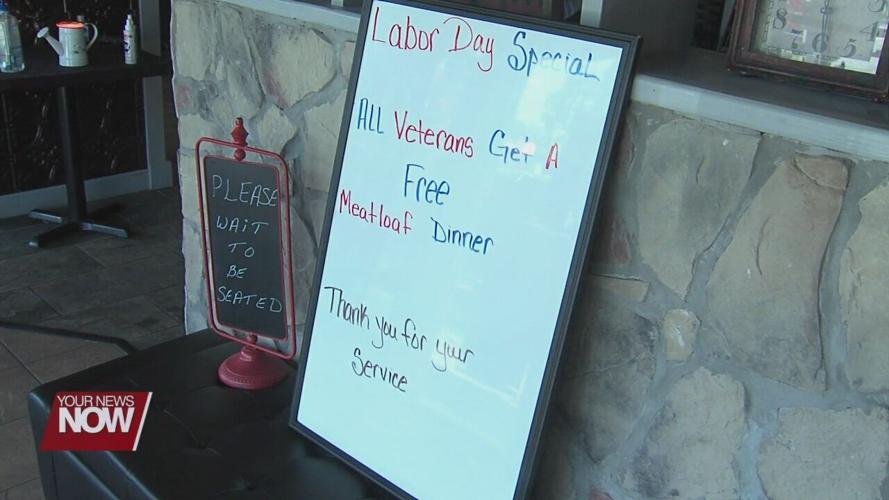 Labor Day Special
ALL Veterans Get A
Free
Meatloaf Dinner
Thank you for your
Service
PLEASE
WAiT
TO
BE
SEATED
YOUR NEWS
NOW